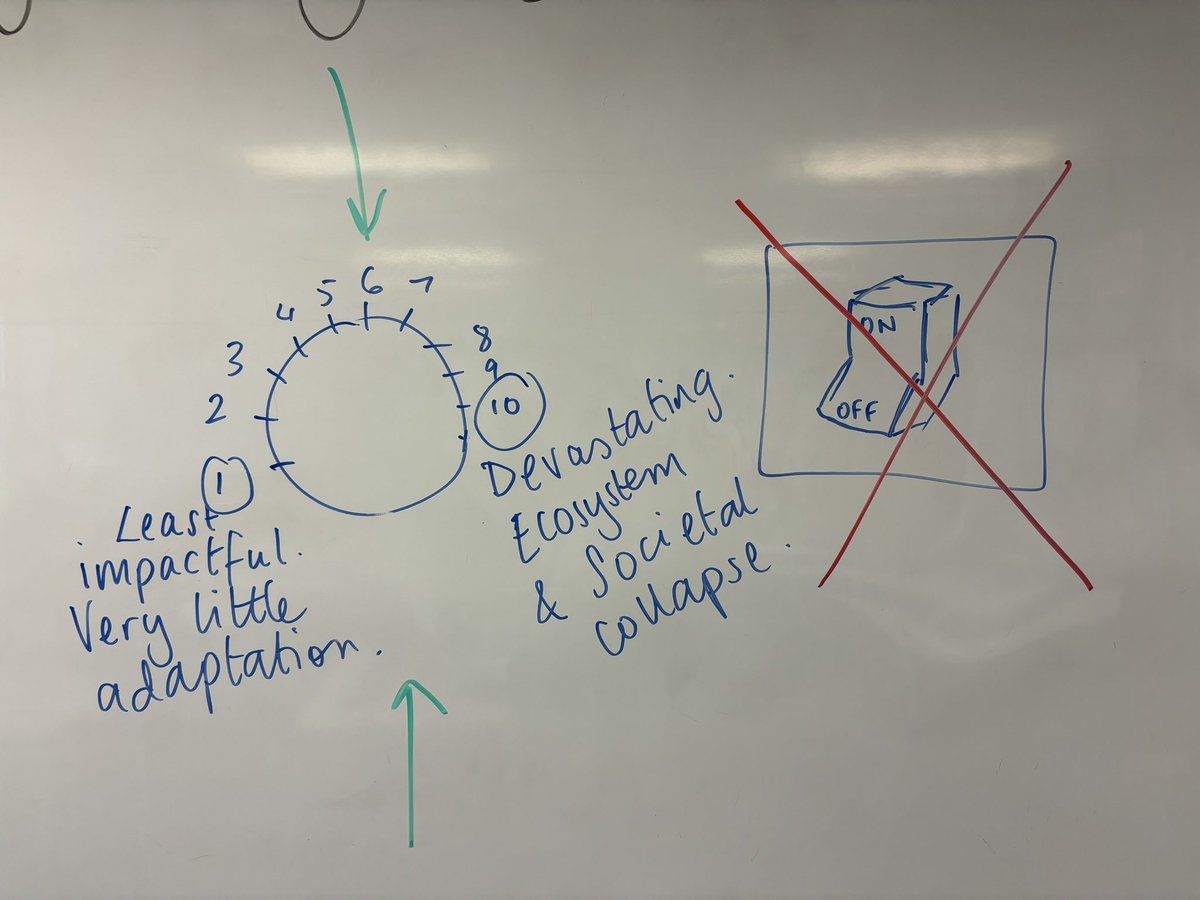 1
2
3
4
5
6
7
8
9
10
Least
impactful.
Very little
adaptation.
Devastating.
Ecosystem
& Societal
collapse.
ON
OFF